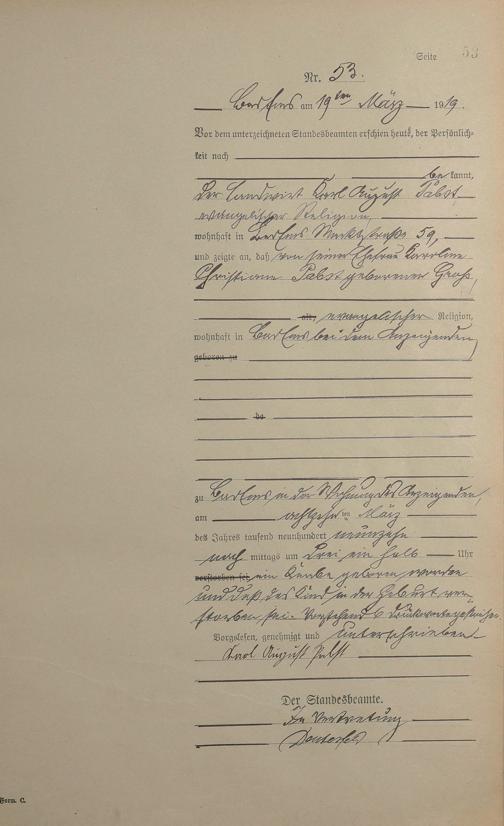 Seite 53
Nr. 53.
Bad Ems am 19ten März 1919.
Vor dem unterzeichneten Standesbeamten erschien heute, der Persönlich-
keit nach
bekannt,
der Landwirt Karl August Pabst
evangelischer Religion,
wohnhaft in Bad Ems Marktstraße 59,
und zeigte an, daß von seiner Ehefrau Karoline
Christiane Pabst geborener
alt, evangelischer Religion,
wohnhaft in Bad Ems bei dem Anzeigenden,
geboren zu
da
zu Bad Ems in der Wohnung des Anzeigenden,
am achtzehnten März
des Jahres tausend neunhundert neunzehn
nach mittags um drei ein halb Uhr
verstorben sei, ein Knabe geboren worden
und daß das Kind in der Geburt ver-
storben sei. Vorstehend 6 Druckworte gestrichen.
Vorgelesen, genehmigt und unterschrieben
Karl August Pabst
Der Standesbeamte.
In Vertretung
Form. C.